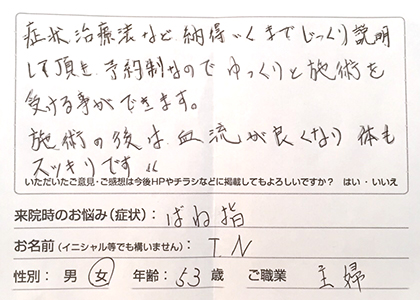 症状、治療法など、納得いくまでじっくり説明
して頂き、予約制なので ゆっくりと施術を
受ける事ができます。
施術の後は血流が良くなり 体も
スッキリです〃
いただいたご意見・ご感想は今後HPやチラシなどに掲載してもよろしいですか? はい・いいえ
来院時のお悩み(症状): ばね指
お名前(イニシャル等でも構いません): T.N
性別: 男 女 年齢: 53 歳 ご職業 主婦